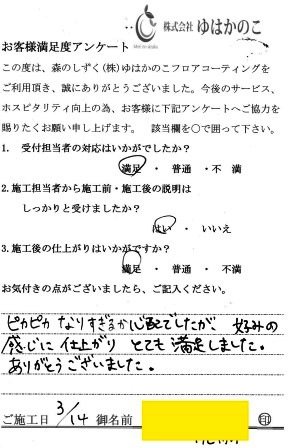 株式会社 ゆはかのこ
お客様満足度アンケート
この度は、森のしずく(株)ゆはかのこフロアコーティングを
ご利用頂き、誠にありがとうございました。今後のサービス、
ホスピタリティ向上の為、お客様に下記アンケートへご協力を
賜りたくお願い申し上げます。 該当欄を○で囲って下さい。
1. 受付担当者の対応はいかがでしたか?
満足 ・ 普通 ・不 満
2.施工担当者から施工前・施工後の説明は
しっかりと受けましたか?
はい ・ いいえ
3.施工後の仕上がりはいかがですか?
満足 ・ 普通 ・ 不満
お気付きの点がございましたら、ご記入ください。
ピカピカ なりすぎるか心配でしたが、好みの
感じに仕上がり とても満足しました。
ありがとうございました。
ご施工日 3/14 御名前 印